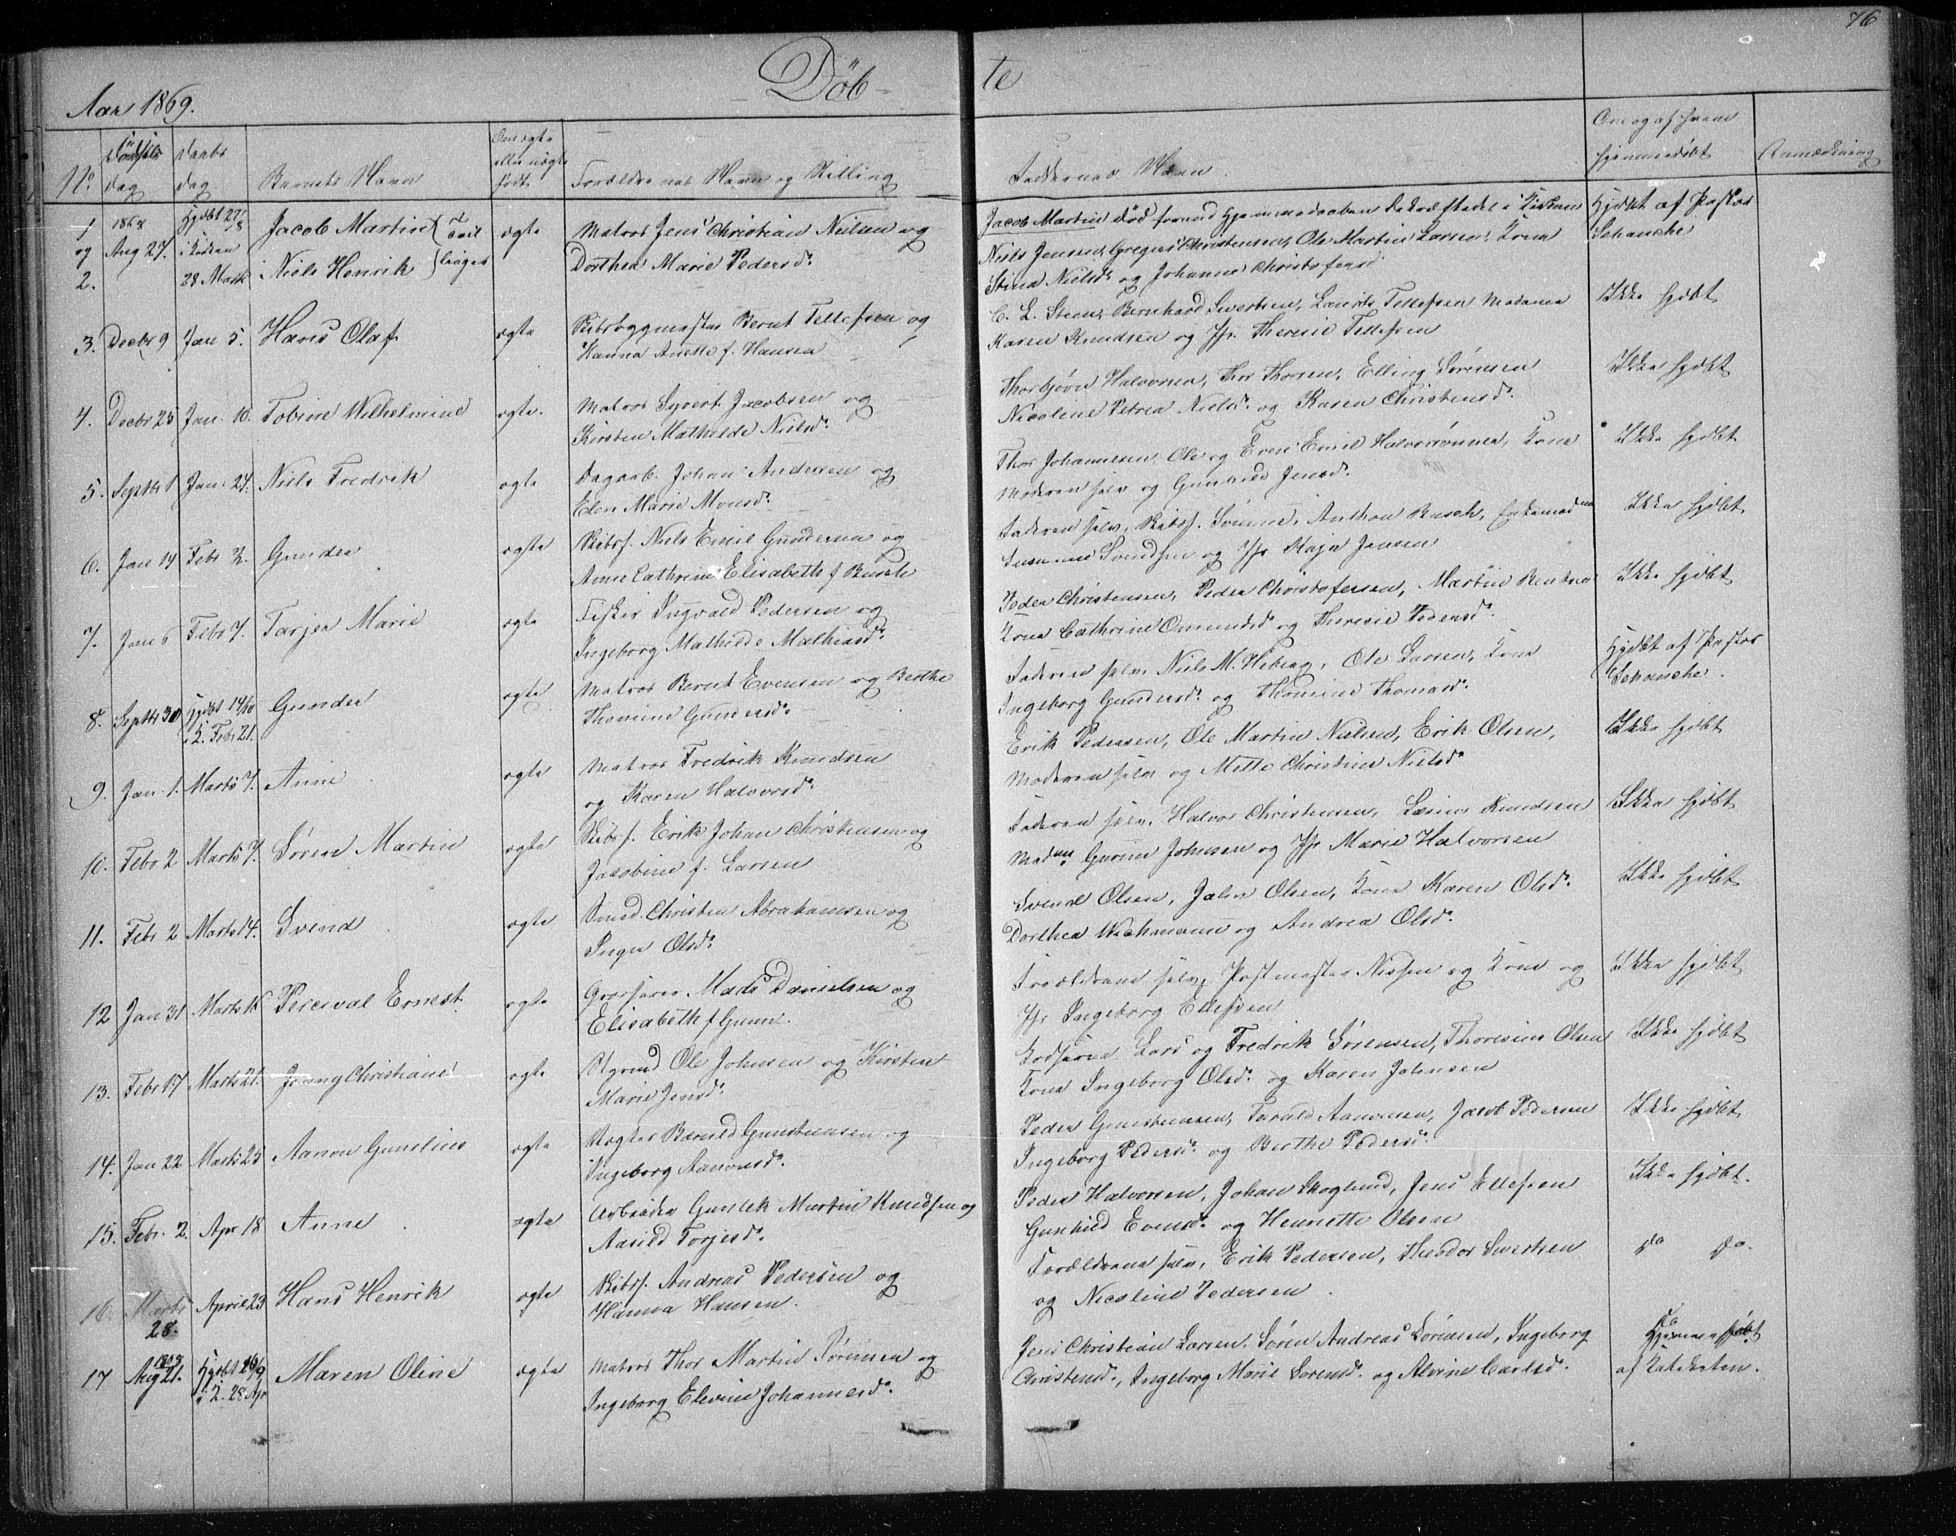 76
Döb
te
Aar 1869.
No
Födsels dag
Daabs dag
Barnets Navn
Om ægte eller uægte født
Forældrenes Navn og Stilling
Faddernes Navn
Om og af hvem hjemmedöbt
Anmærkning
1 og 2. 1868 Aug 27. Hjdbt 27/8 i Kirken 28 Marts Jacob Martin Niels Henrik Tvillinger ægte Matros Jens Christian Nielsen og
Dorthea Marie Pedersd.
Jacob Martin död forend Hjemmedaaben bekræftedes i Kirken
Niels Jensen, Gregers Christensen, Ole Martin Larsen, Kone
Stina Nielsd. og Johanne Christofersd.
Hjdbt af Pastor Schanche
3. Decbr 9 Jan 5. Hans Olaf ægte Skibsbyggmester Bernt Tellefsen og
Hanna Anette f. Hansen
C. L. Steen, Bernhard Sivertsen, Laurits Tellefsen Madame
Karen Knudsen og Jfr. Theresie Tellefsen
Ikke hjdbt
4. Decbr 25 Jan. 10. Tobine Wilhelmine ægte. Matros Syvert Jacobsen og
Kirsten Mathilde Nielsd.
Thorbjørn Halvorsen, Thor Thorsen, Elling Sørensen
Nicoline Petrea Nielsd. og Karen Christensd.
Ikke hjdbt
5. Septbr 1 Jan. 24. Niels Fredrik ægte Dagarb. Johan Andersen og
Elen Marie Monsd.
Thor Johannesen, Ole og Even Emil Halvorsønner, Kone
Moderen selv og Gunhild Jensd.
Ikke hjdbt
6. Jan 14 Febr 2. Gunder ægte Skibsf. Niels Emil Gundersen og
Anne Cathrine Elisabeth f Busch
Faderen selv, Skibsf. Svenne, Anthon Busch, Enkemadme
Susanne Svendsen og Jfr Kaja Jensen
Ikke hjdbt
7. Jan 6 Febr 7. Tarjer Marie ægte Fisker Ingvald Pedersen og
Ingeborg Mathilde Mathiasd.
Peder Christensen, Peder Christofersen, Martin Berntsen
Kone Cathrine Omundsd. og Theresie Pedersd.
Ikke hjdbt
8. Septbr 30 Hjdbt 14/10 i K. Febr 21. Gunder ægte Matros Bernt Evensen og Berthe
Thomine Gundersd.
Faderen selv, Niels M. Heberg, Ole Larsen, Kone
Ingeborg Gundersd. og Thomine Thomasd.
Hjdbt af Pastor Schanche.
9. Jan 1. Marts 7. Anne ægte Matros Fredrik Knudsen
og Karen Halvorsd.
Erik Pedersen, Ole Martin Nielsen, Erik Olsen,
Moderen selv og Mette Christine Nielsd.
Ikke hjdbt
10. Febr 2 Marts 7. Søren Martin ægte Skibsf. Erik Johan Christensen og
Jacobine f. Larsen
Faderen selv, Halvor Christensen, Larsine Knudsen
Madme Gurine Johnsen og Jfr Marie Halvorsen
Ikke hjdbt
11. Febr 2 Marts 14. Svend ægte Smed. Christen Abrahamsen og
Inger Olsd.
Svend Olsen, Jalv Olsen, Kone Karen Olsd.
Dorthea Wichmann og Andrea Olsd.
Ikke hjdbt
12 Jan 31 Marts 16 Perceval Ernest ægte Grosserer Mads Danielsen og
Elisabeth f Gunn.
Forældrene selv, Postmester Nissen og Kone og
Jfr Ingeborg Ellefsen
Ikke hjdbt
13. Febr 17 Marts 21. Jenny Christiane ægte Styrmd Ole Johnsen og Kirsten
Marie Jensd.
Lods Lars og Fredrik Sørensen, Thorsine Olsen
Kone Ingeborg Olsd. og Karen Johnsen
Ikke hjdbt
14. Jan 22 Marts 25 Aanon Gunelius ægte Vægter Baruld Gunstensen og
Ingeborg Aanonsd.
Peder Gunstensen, Taruld Aanonsen, Jacob Pedersen
Ingeborg Pedersd. og Berthe Pedersd.
Ikke hjdbt
15. Febr. 2. Apr 18 Anne ægte Arbeider Gunlek Martin Knudsen og
Aasild Torjesd.
Peder Halvorsen, Johan Skoglund, Jens Ellefsen
Gunhild Evensd. og Henriette Olsen
Ikke hjdbt.
16 Marts 28. April 23 Hans Henrik ægte Skibsf. Andreas Pedersen og
Hanna Hansen.
Forældrene selv, Erik Pedersen, Theodor Sivertsen
og Nicoline Pedersen.
do do.
17 1868 Aug 21. Hjdbt 26/9 i K. 28. Apr Maren Oline ægte Matros Thor Martin Sørensen og
Ingeborg Elevine Johannesd.
Jens Christian Larsen, Søren Andreas Sørensen, Ingeborg
Christensd., Ingeborg Marie Sørensd. og Alvine Carlsd.
Hjemmedöbt af Kateketen.